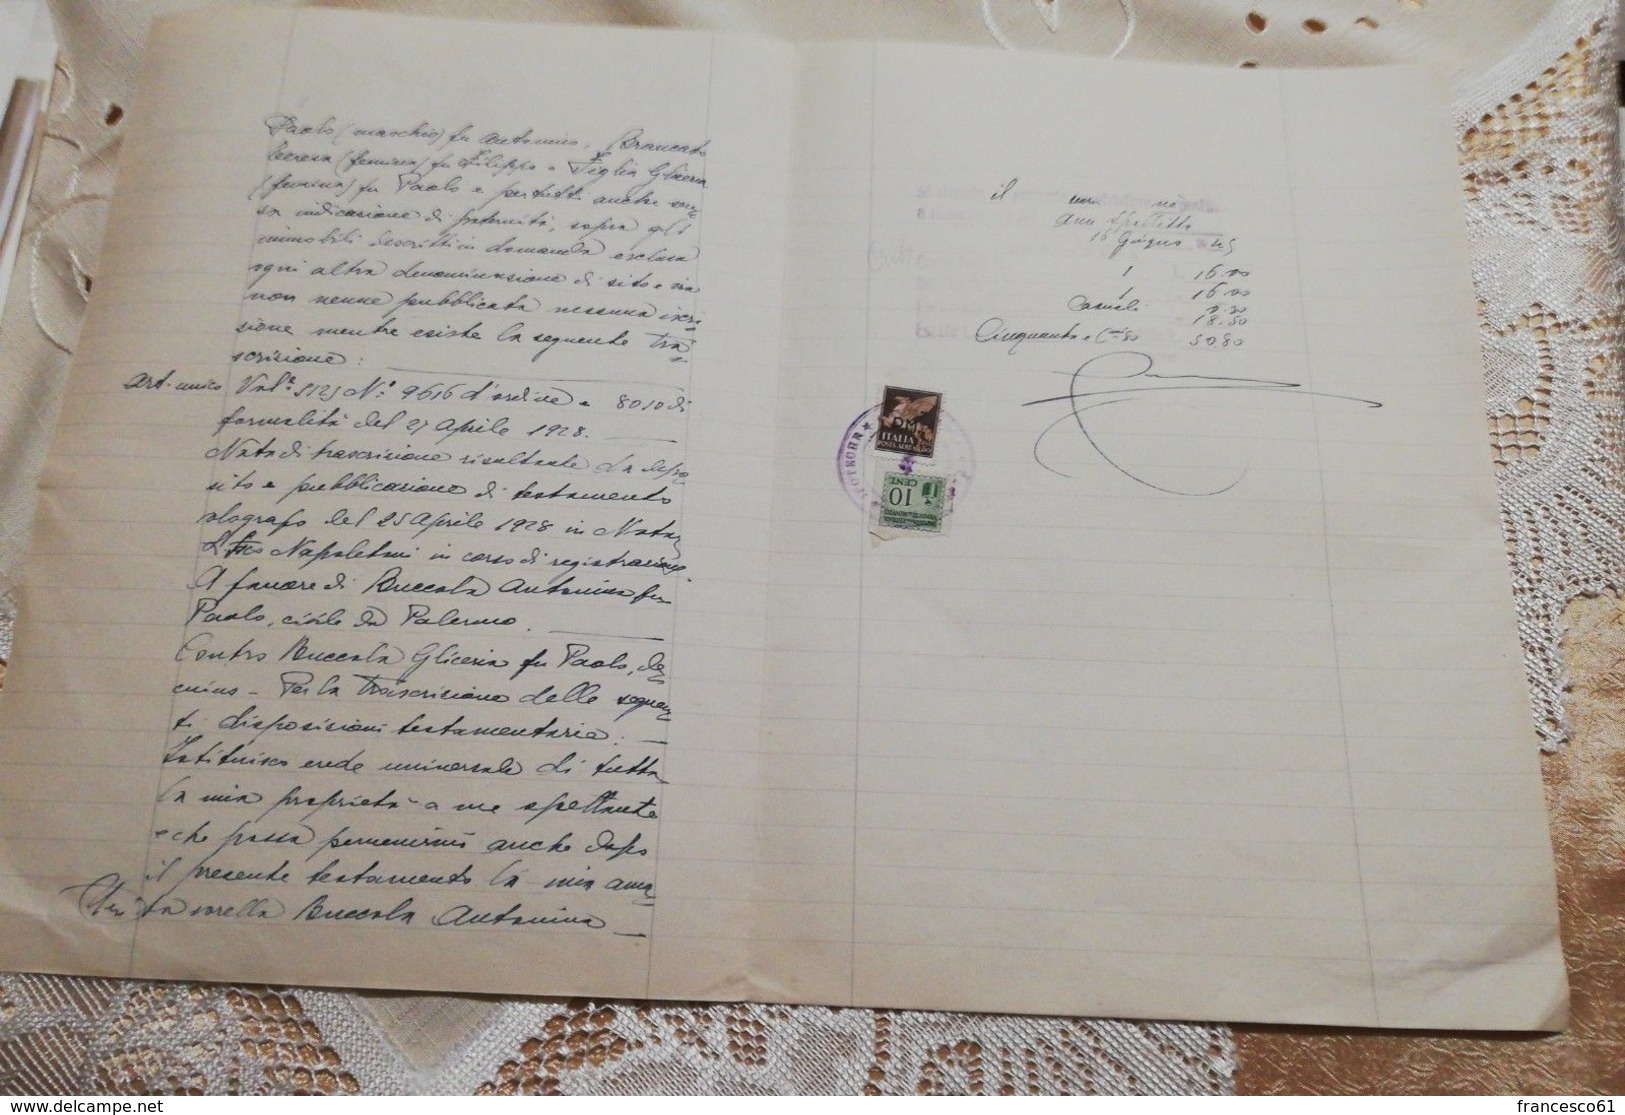 Paolo (maschio) fu Antonino, Brancato
Teresa (femina) fu Filippo e Figlia Gliceria
(femina) fu Paolo e per tutti anche sen
sa indicazione di paternità, sopra gli
immobili descritti in domanda esclusa
ogni altra denominazione di sito e via
non venne pubblicata nessuna iscri
zione mentre esiste la seguente Tra
scrizione:
Art. unico Vol. 5125 N.° 9616 d'ordine e 8010 di
formalità del 27 Aprile 1928.
Nota di trascrizione risultante da depo
sito e pubblicazione di testamento
olografo del 25 Aprile 1928 in Notar
Napoletani in corso di registrazione
A favore di Buccola Antonina fu
Paolo, civile da Palermo.
Contro Buccola Gliceria fu Paolo, de
cuius - Per la Trascrizione delle seguen
ti disposizioni testamentarie:
Istituisco erede universale di tutta
la mia proprietà a me spettante
e che possa pervenirmi anche dopo
il presente testamento la mia ama
ta sorella Buccola Antonina
il
16 Giugno 45
1 16.00
1 16.00
18.50
Cinquanta e C. 80 50.80
PM
ITALIA
POSTA AEREA
10
CENT
francesco61
www.delcampe.net